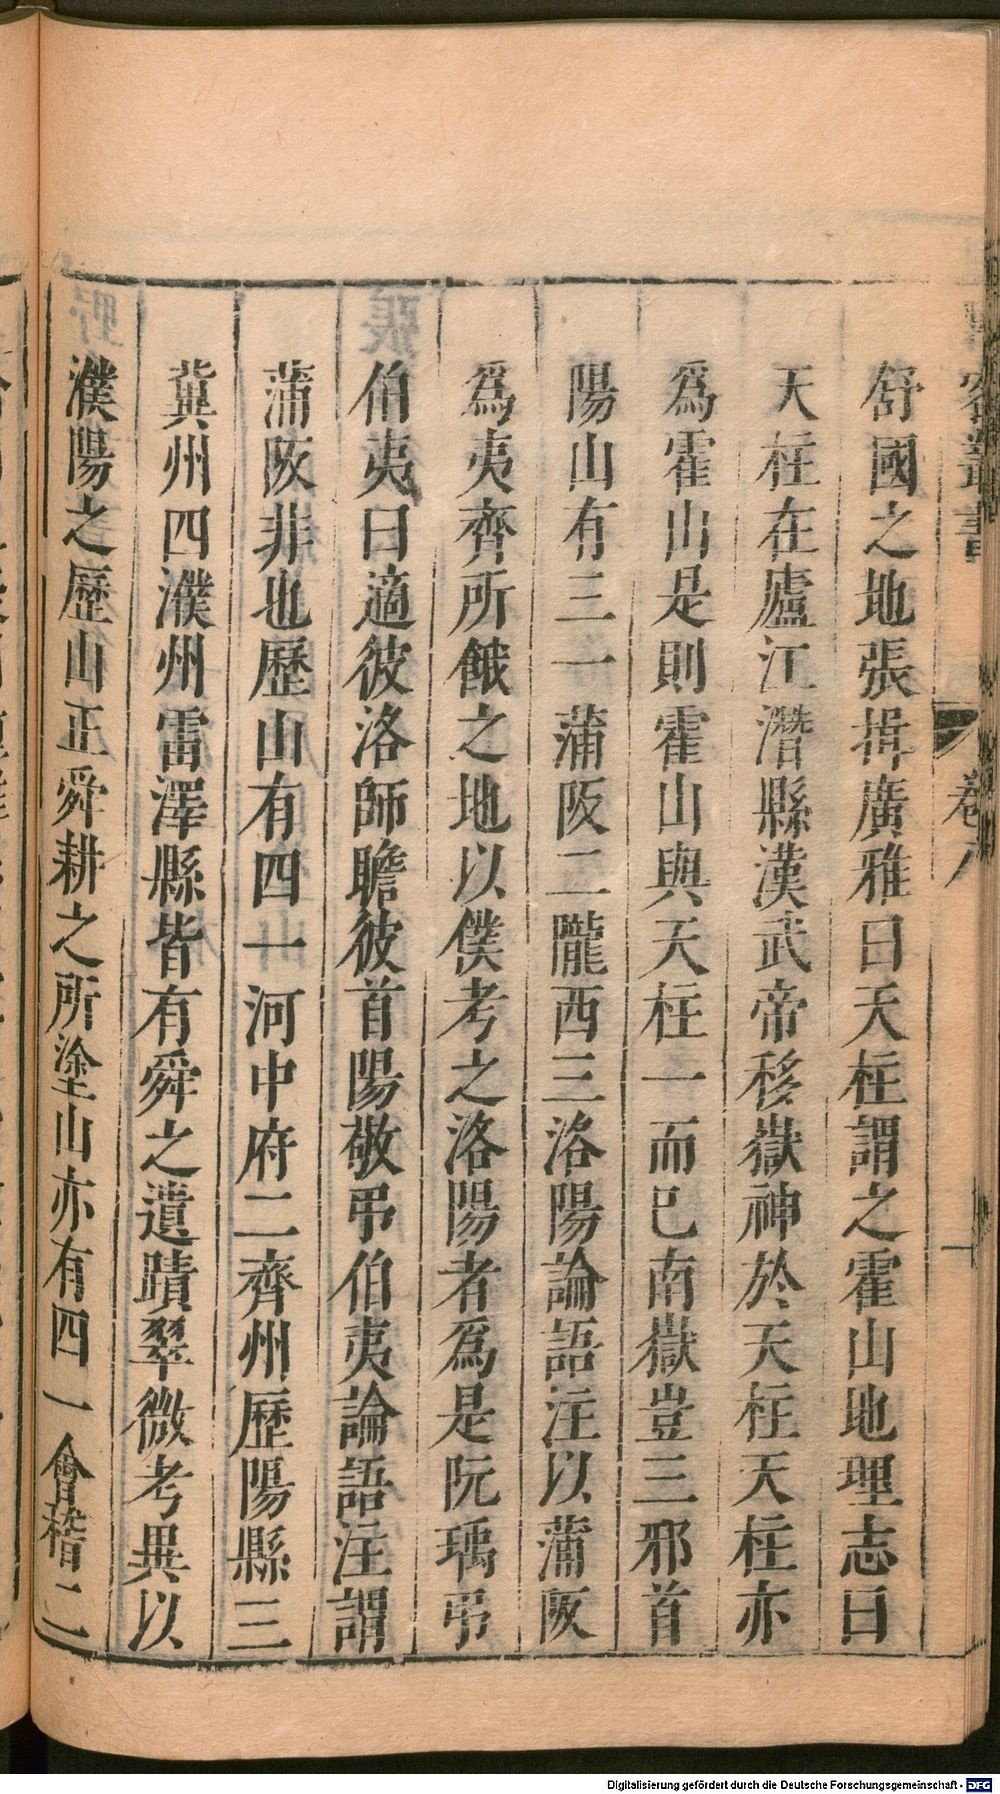 舒國之地張揖廣雅曰天柱謂之霍山地理志曰
天柱在廬江潛縣漢武帝移嶽神於天柱天柱亦
爲霍山是則霍山與天柱一而已南嶽豈三邪首
陽山有三一蒲阪二隴西三洛陽論語注以蒲阪
爲夷齊所餓之地以僕考之洛陽者爲是阮瑀弔
伯夷曰適彼洛師瞻彼首陽敬弔伯夷論語注謂
蒲阪非也歷山有四一河中府二齊州歷陽縣三
冀州四濮州雷澤縣皆有舜之遺蹟翠微考異以
濮陽之歷山正舜耕之所塗山亦有四一會稽二
Digitalisierung gefördert durch die Deutsche Forschungsgemeinschaft - DFG